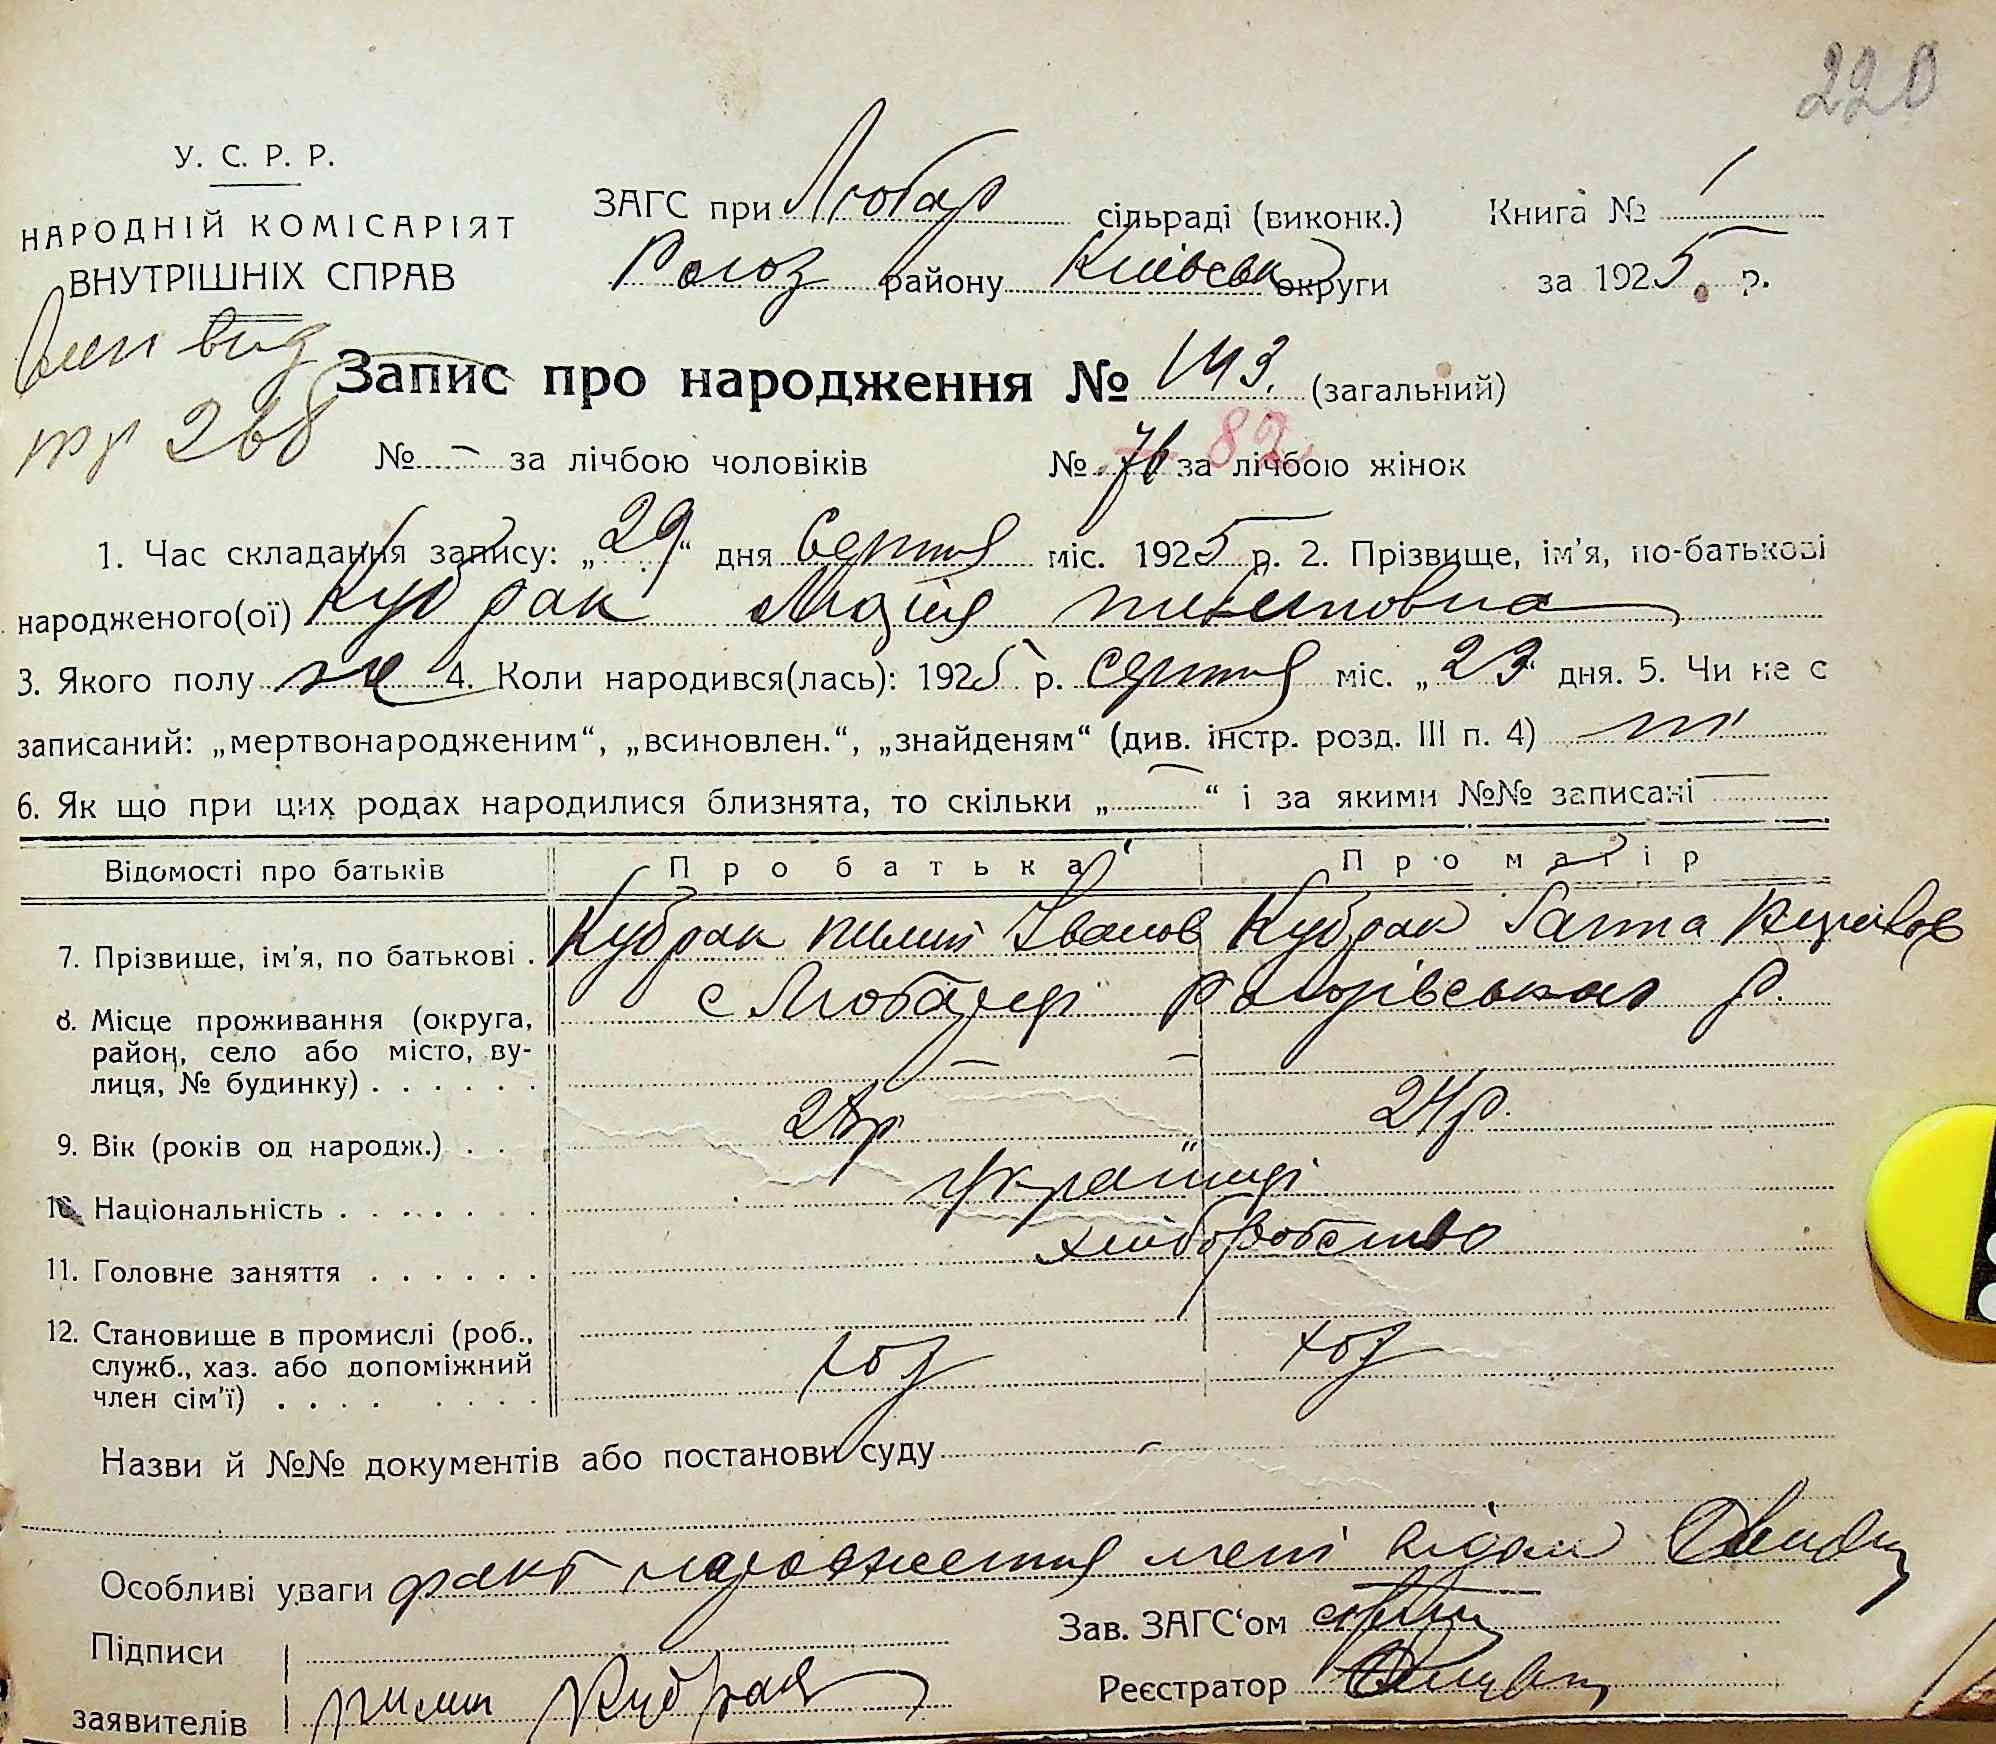 220
У. С. Р. Р.
НАРОДНІЙ КОМІСАРІЯТ
ВНУТРІШНІХ СПРАВ
ЗАГС при Любар сільраді (виконк.) Книга № 1
Рогоз району Київськ округи за 1925 р.
вид
268
Запис про народження № 143. (загальний)
№ — за лічбою чоловіків № 76 82 за лічбою жінок
1. Час складання запису: „29“ дня Серпня міс. 1925 р. 2. Прізвище, ім'я, по-батькові
народженого(ої) Кубрак Марія Пилиповна
3. Якого полу ж 4. Коли народився(лась): 1925 р. серпня міс. „23“ дня. 5. Чи не є
записаний: „мертвонародженим“, „всиновлен.“, „знайденям“ (див. інстр. розд. III п. 4) ні
6. Як що при цих родах народилися близнята, то скільки „—“ і за якими №№ записані —
Відомості про батьків Про батька Про матір
7. Прізвище, ім'я, по батькові . Кубрак Пилип Іванов Кубрак Ганна
8. Місце проживання (округа, с Любарці Рогозівськая р.
район, село або місто, ву-
лиця, № будинку) . . . . . . — —
9. Вік (років од народж.) . . . 28р 24р.
10. Національність . . . . . . . Українці
11. Головне заняття . . . . . . хліборобство
12. Становище в промислі (роб.,
служб., хаз. або допоміжний хоз хоз
член сім'ї) . . . . . . . .
Назви й №№ документів або постанови суду —
Особливі уваги факт народження мені відом
Підписи Зав. ЗАГС'ом
заявителів Пилип Кубрак Реєстратор